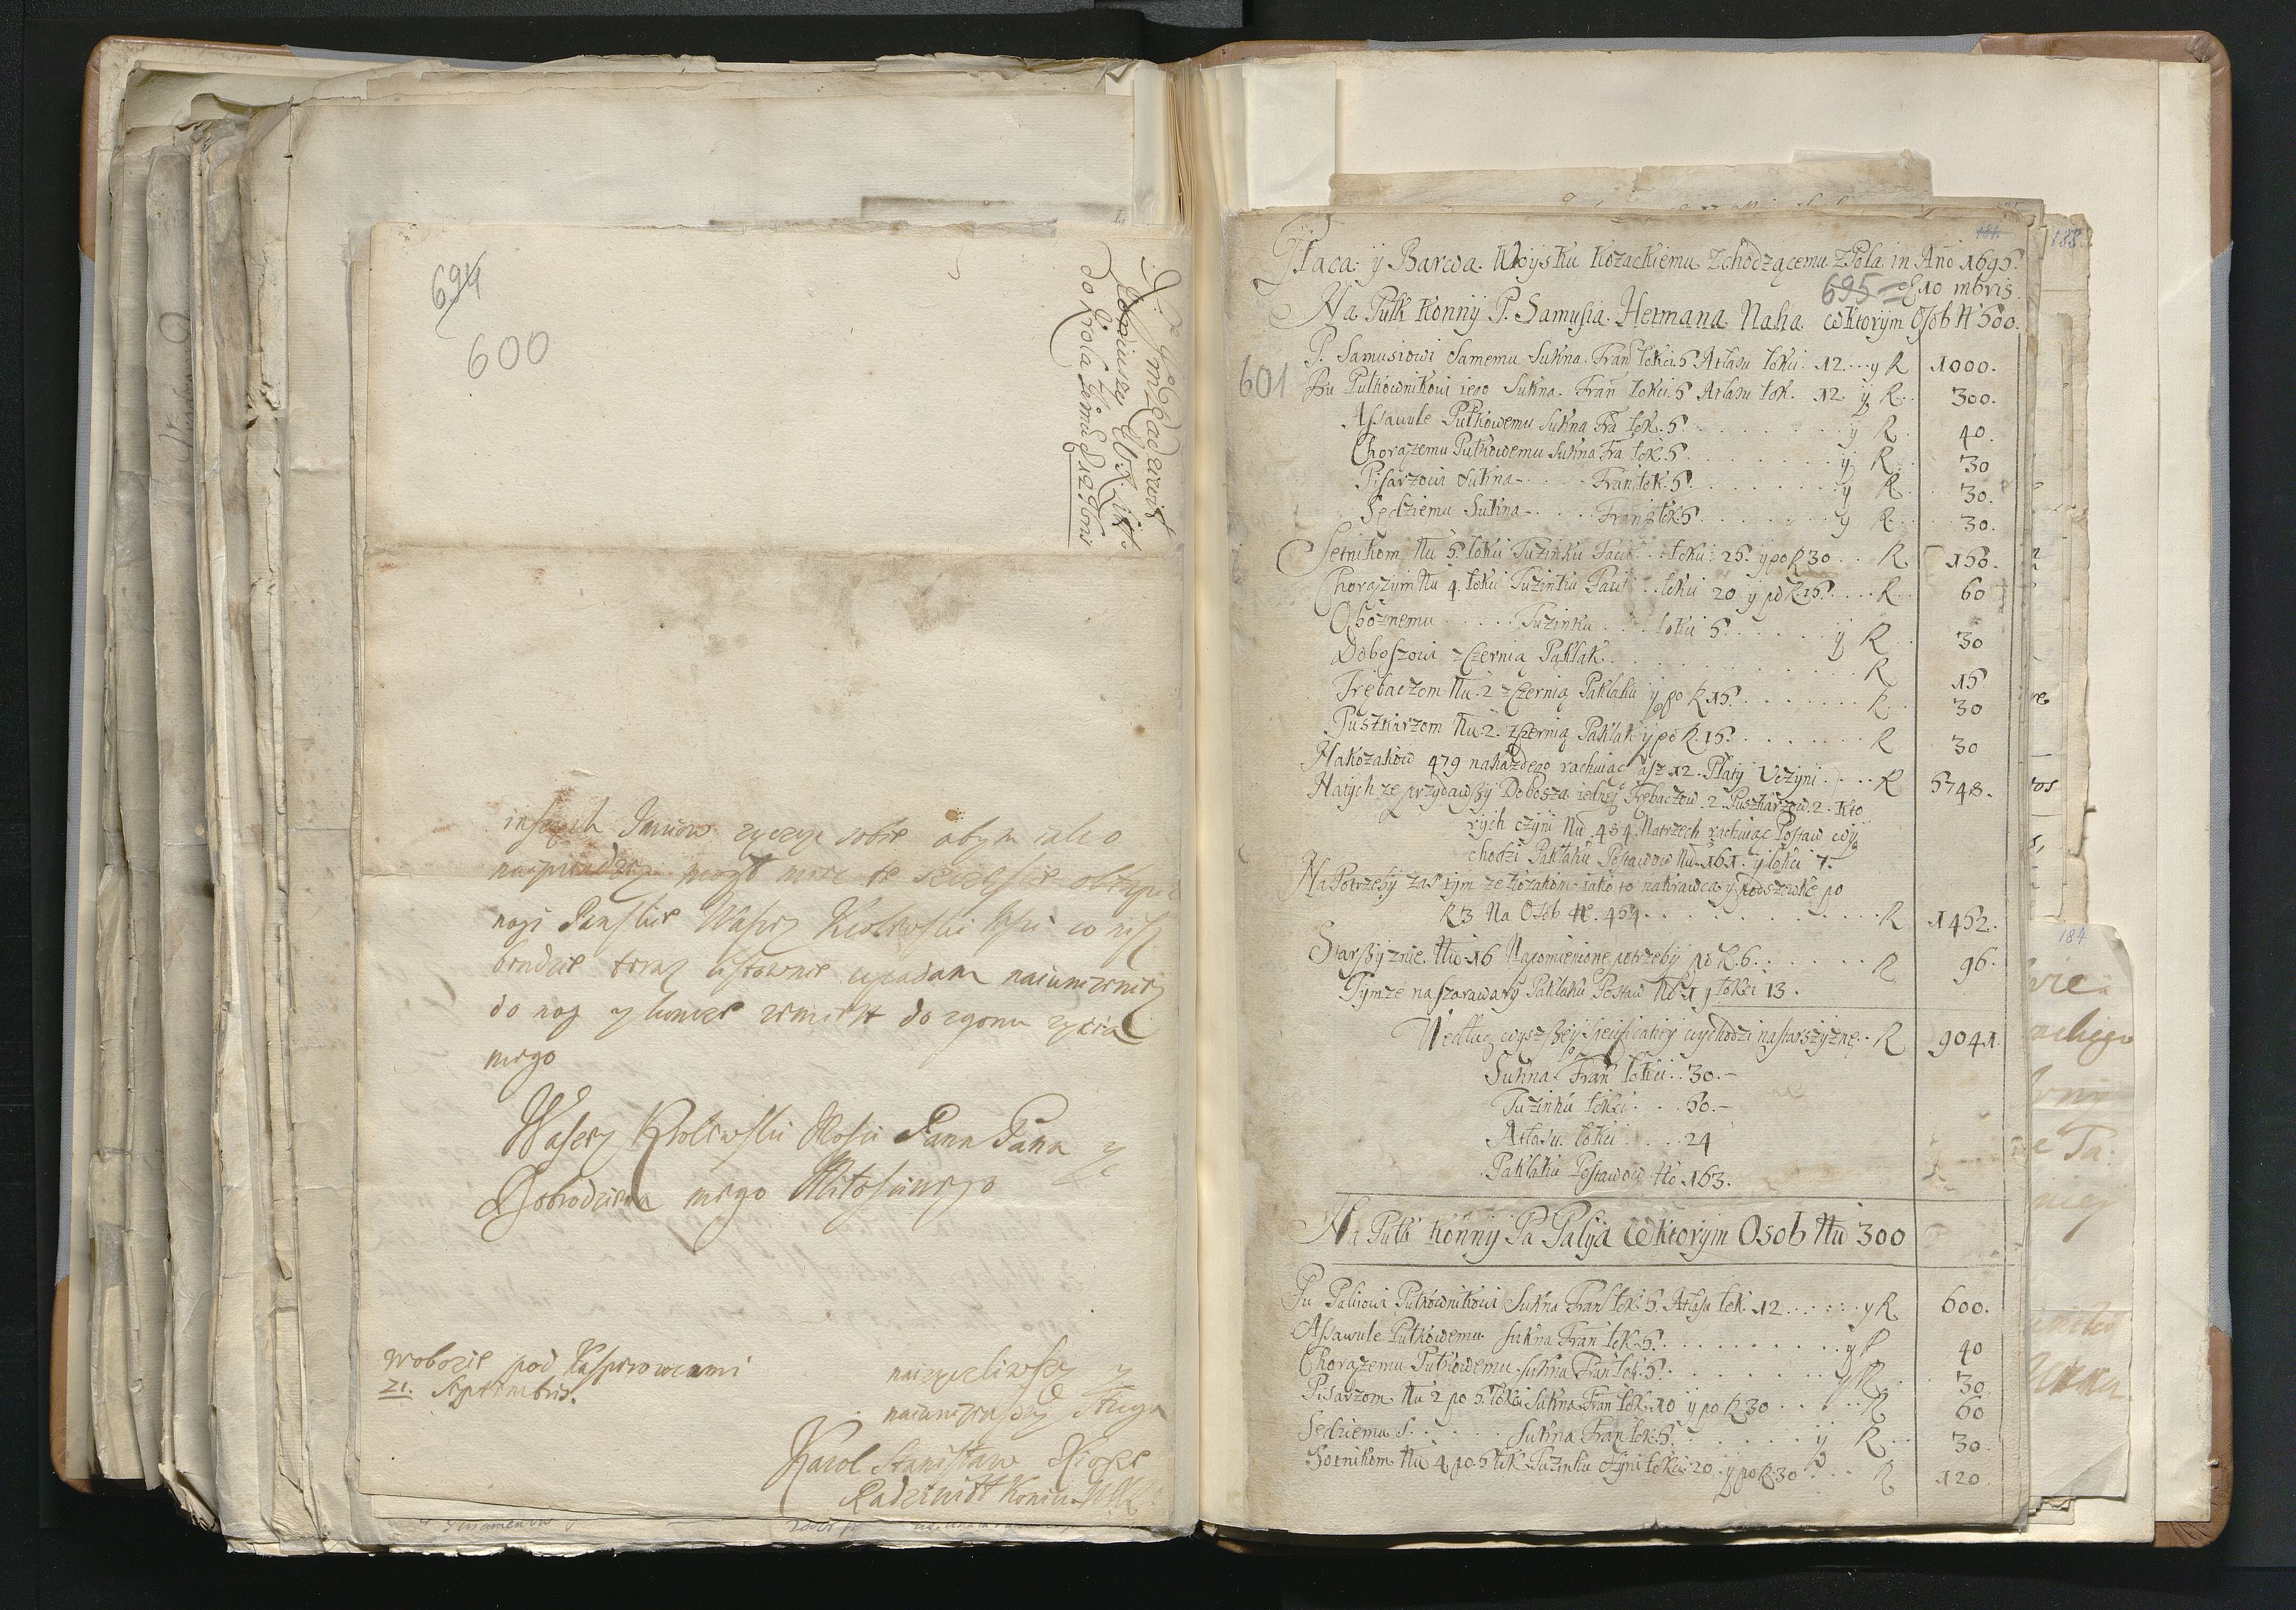 694
600
X. Jmci Radziwiłł
Koniuszy W. X. Litt.
do Krola Jemci
inszych Panow zyczyc sobie abym iako
nayprendzey mogł
nogi Panskie Waszey Krolewski Msci co nisz
bendzie teraz listownie upadam naiunizeniey
do nog y do zgonu zycia
mego
Waszey Krolewski Mosci Pana Pana y
Dobrodzieia mego Miłosciwego
wobozie pod Kasperowcami
21. Septembris.
naizyczliwszy y
naiunizenszy Sługa
Karol Stanisław Xionze
Radziwiłł Koniu. W.X.L.
188.
Płaca y Barwa Woysku Kozackiemu Zchodzącemu z Pola in Año 1695.
695 10 mbris
Na Pułk Konny P. Samusia Hetmana Naka. wktorym Osob No 500.
601
P. Samusiowi Samemu Sukna Fran łokci 5 Atłasu łokci 12 . . . y R 1000.
Pu Pułkownikowi iego Sukna Fran łokci 5 Atłasu łok. 12 y R. 300.
Assawule Pułkowemu Sukna Fra łok. 5 . . . y R. 40.
Chorązemu Pułkowemu Sukna Fra łok. 5 . . . y R. 30
Pisarzowi Sukna . . . Fran łok. 5 . . . y R. 30.
Sędziemu Sukna . . . Fran łok 5 . . . y R. 30.
Setnikom Nu 5. łokci Tuzinku Facit . . łokci 25. y po R 30 . . R 150.
Chorązym Nu 4. łokci Tuzinku Facit . . łokci 20 y po R. 15 . . . R 60
Oboznemu . . . Tuzinku . . łokci 5 . . . y R 30
Doboszowi zczernią Pakłak . . . R 15
Trębaczom Nu. 2 zczernią Pakłaku y po R 15 . . . R 30
Puszkarzom Nu. 2. zczernią Pakłak y po R. 15 . . . R 30
Na Kozakow 479 nakazdego rachuiąc a sz 12. Płaty Uczyni . . . R 5748.
Natych ze przydawszy Dobosza iedneo Trębaczow. 2. Puszkarzow. 2. Kto
rych czyni Nu. 484. Natrzech rachuiąc Postaw wy
chodzi Pakłaku Postawow Nu. 161. y łokci 7.
Na Potrzeby zas tym ze Kozakom iako to nakrawca y podszewkę po
R 3 Na Osob No. 484 . . . R 1452.
Starszyznie Nu. 16 Napomienione potrzeby po R. 6 . . . R 96.
Tymze na szarawary Pakłaku Postaw No. 1 y łokci 13.
Według wyszszey Specificatiey wychodzi nastarszyznę . . R 9041.
Sukna Fran łokci . . 30.
Tuzinku łokci . . 50.
Atłasu łokci . . . 24
Pakłaku Postawow No. 163.
Na Pułk Konny Pa Palija wktorym Osob Nu 300
Pu Paliiowi Pułkownikowi Sukna Fran łok. 5. Atłasu łok. 12 . . . y R 600.
Assawule Pułkowemu Sukna Fran łok. 5 . . . y R 40
Chorązemu Pułkowemu Sukna Fran łok. 5 . . . y R. 30.
Pisarzom Nu 2 po 5. łokci Sukna Fran łok. 10 y po R 30 . . . R 60
Sędziemu S. . . . Sukna Fran łok: 5 . . . y R. 30.
Sotnikom Nu 4 po 5 łok. Tuzinku czyni łokci 20 y po R. 30 . . . R 120.
184